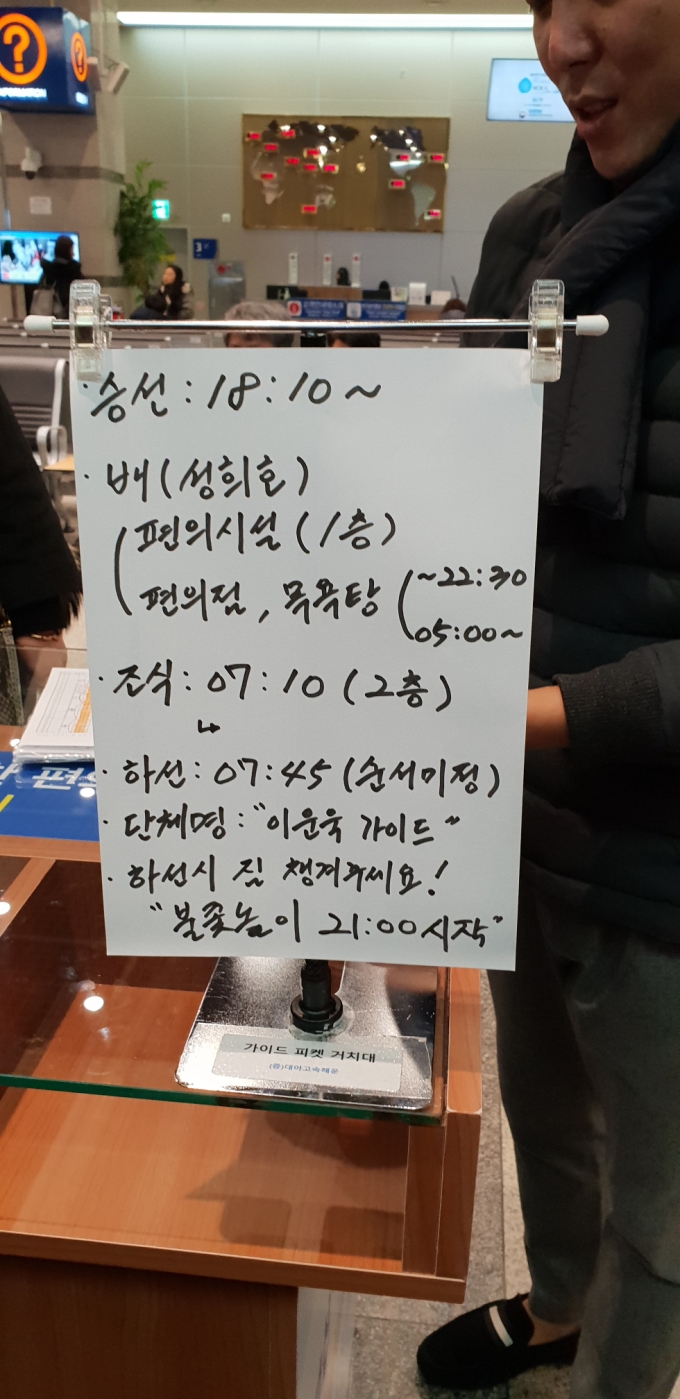 ?
INFORMATION
3
· 승선 : 18:10 ~
· 배 (성희호)
편의시설 (1층)
편의점, 목욕탕 ( ~22:30
05:00~
· 조식 : 07:10 (2층)
↳
· 하선 : 07:45 (순서미정)
· 단체명 : "이운욱 가이드"
· 하선시 짐 챙겨주세요!
"불꽃놀이 21:00 시작"
가이드 피켓 거치대
(주)대아고속해운